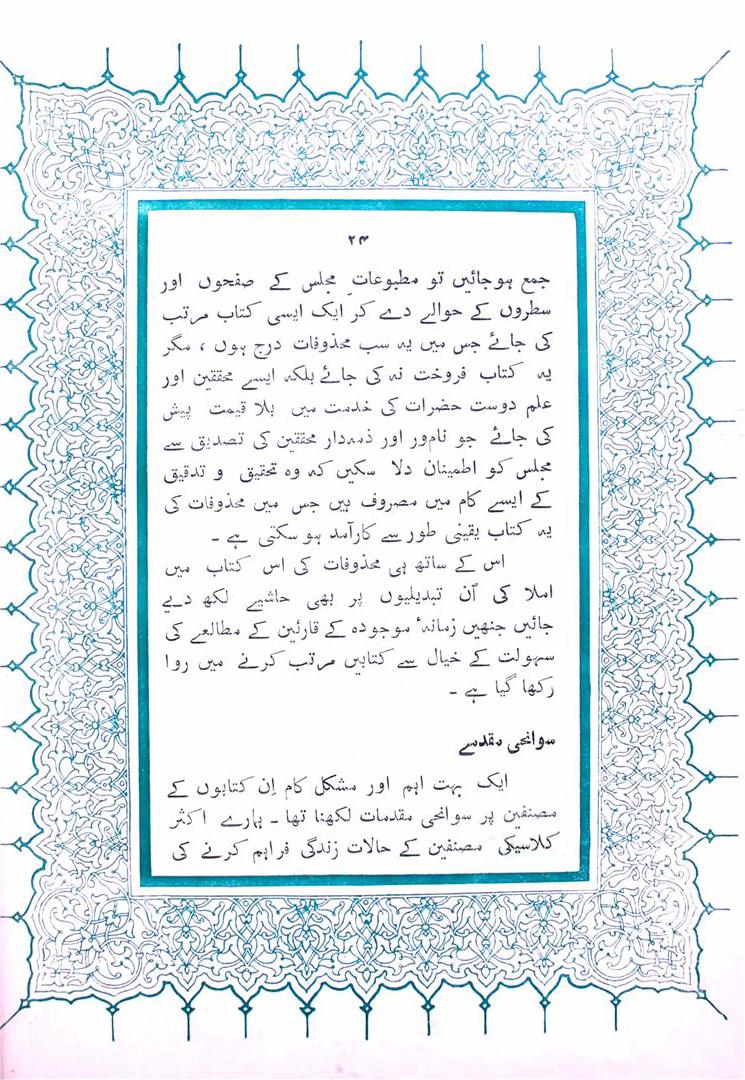 ۲۴
جمع ہوجائیں تو مطبوعاتِ مجلس کے صفحوں اور
سطروں کے حوالے دے کر ایک ایسی کتاب مرتب
کی جائے جس میں یہ سب محذوفات درج ہوں ، مگر
یہ کتاب فروخت نہ کی جائے بلکہ ایسے محققین اور
علم دوست حضرات کی خدمت میں بلا قیمت پیش
کی جائے جو نامور اور ذمہدار محققین کی تصدیق سے
مجلس کو اطمینان دلا سکیں کہ وہ تحقیق و تدقیق
کے ایسے کام میں مصروف ہیں جس میں محذوفات کی
یہ کتاب یقینی طور سے کارآمد ہو سکتی ہے ۔
اس کے ساتھ ہی محذوفات کی اس کتاب میں
املا کی اُن تبدیلیوں پر بھی حاشیے لکھ دیے
جائیں جنھیں زمانۂ موجودہ کے قارئین کے مطالعے کی
سہولت کے خیال سے کتابیں مرتب کرنے میں روا
رکھا گیا ہے ۔
سوانحی مقدمے
ایک بہت اہم اور مشکل کام اِن کتابوں کے
مصنفین پر سوانحی مقدمات لکھنا تھا ۔ ہمارے اکثر
کلاسیکی مصنفین کے حالات زندگی فراہم کرنے کی